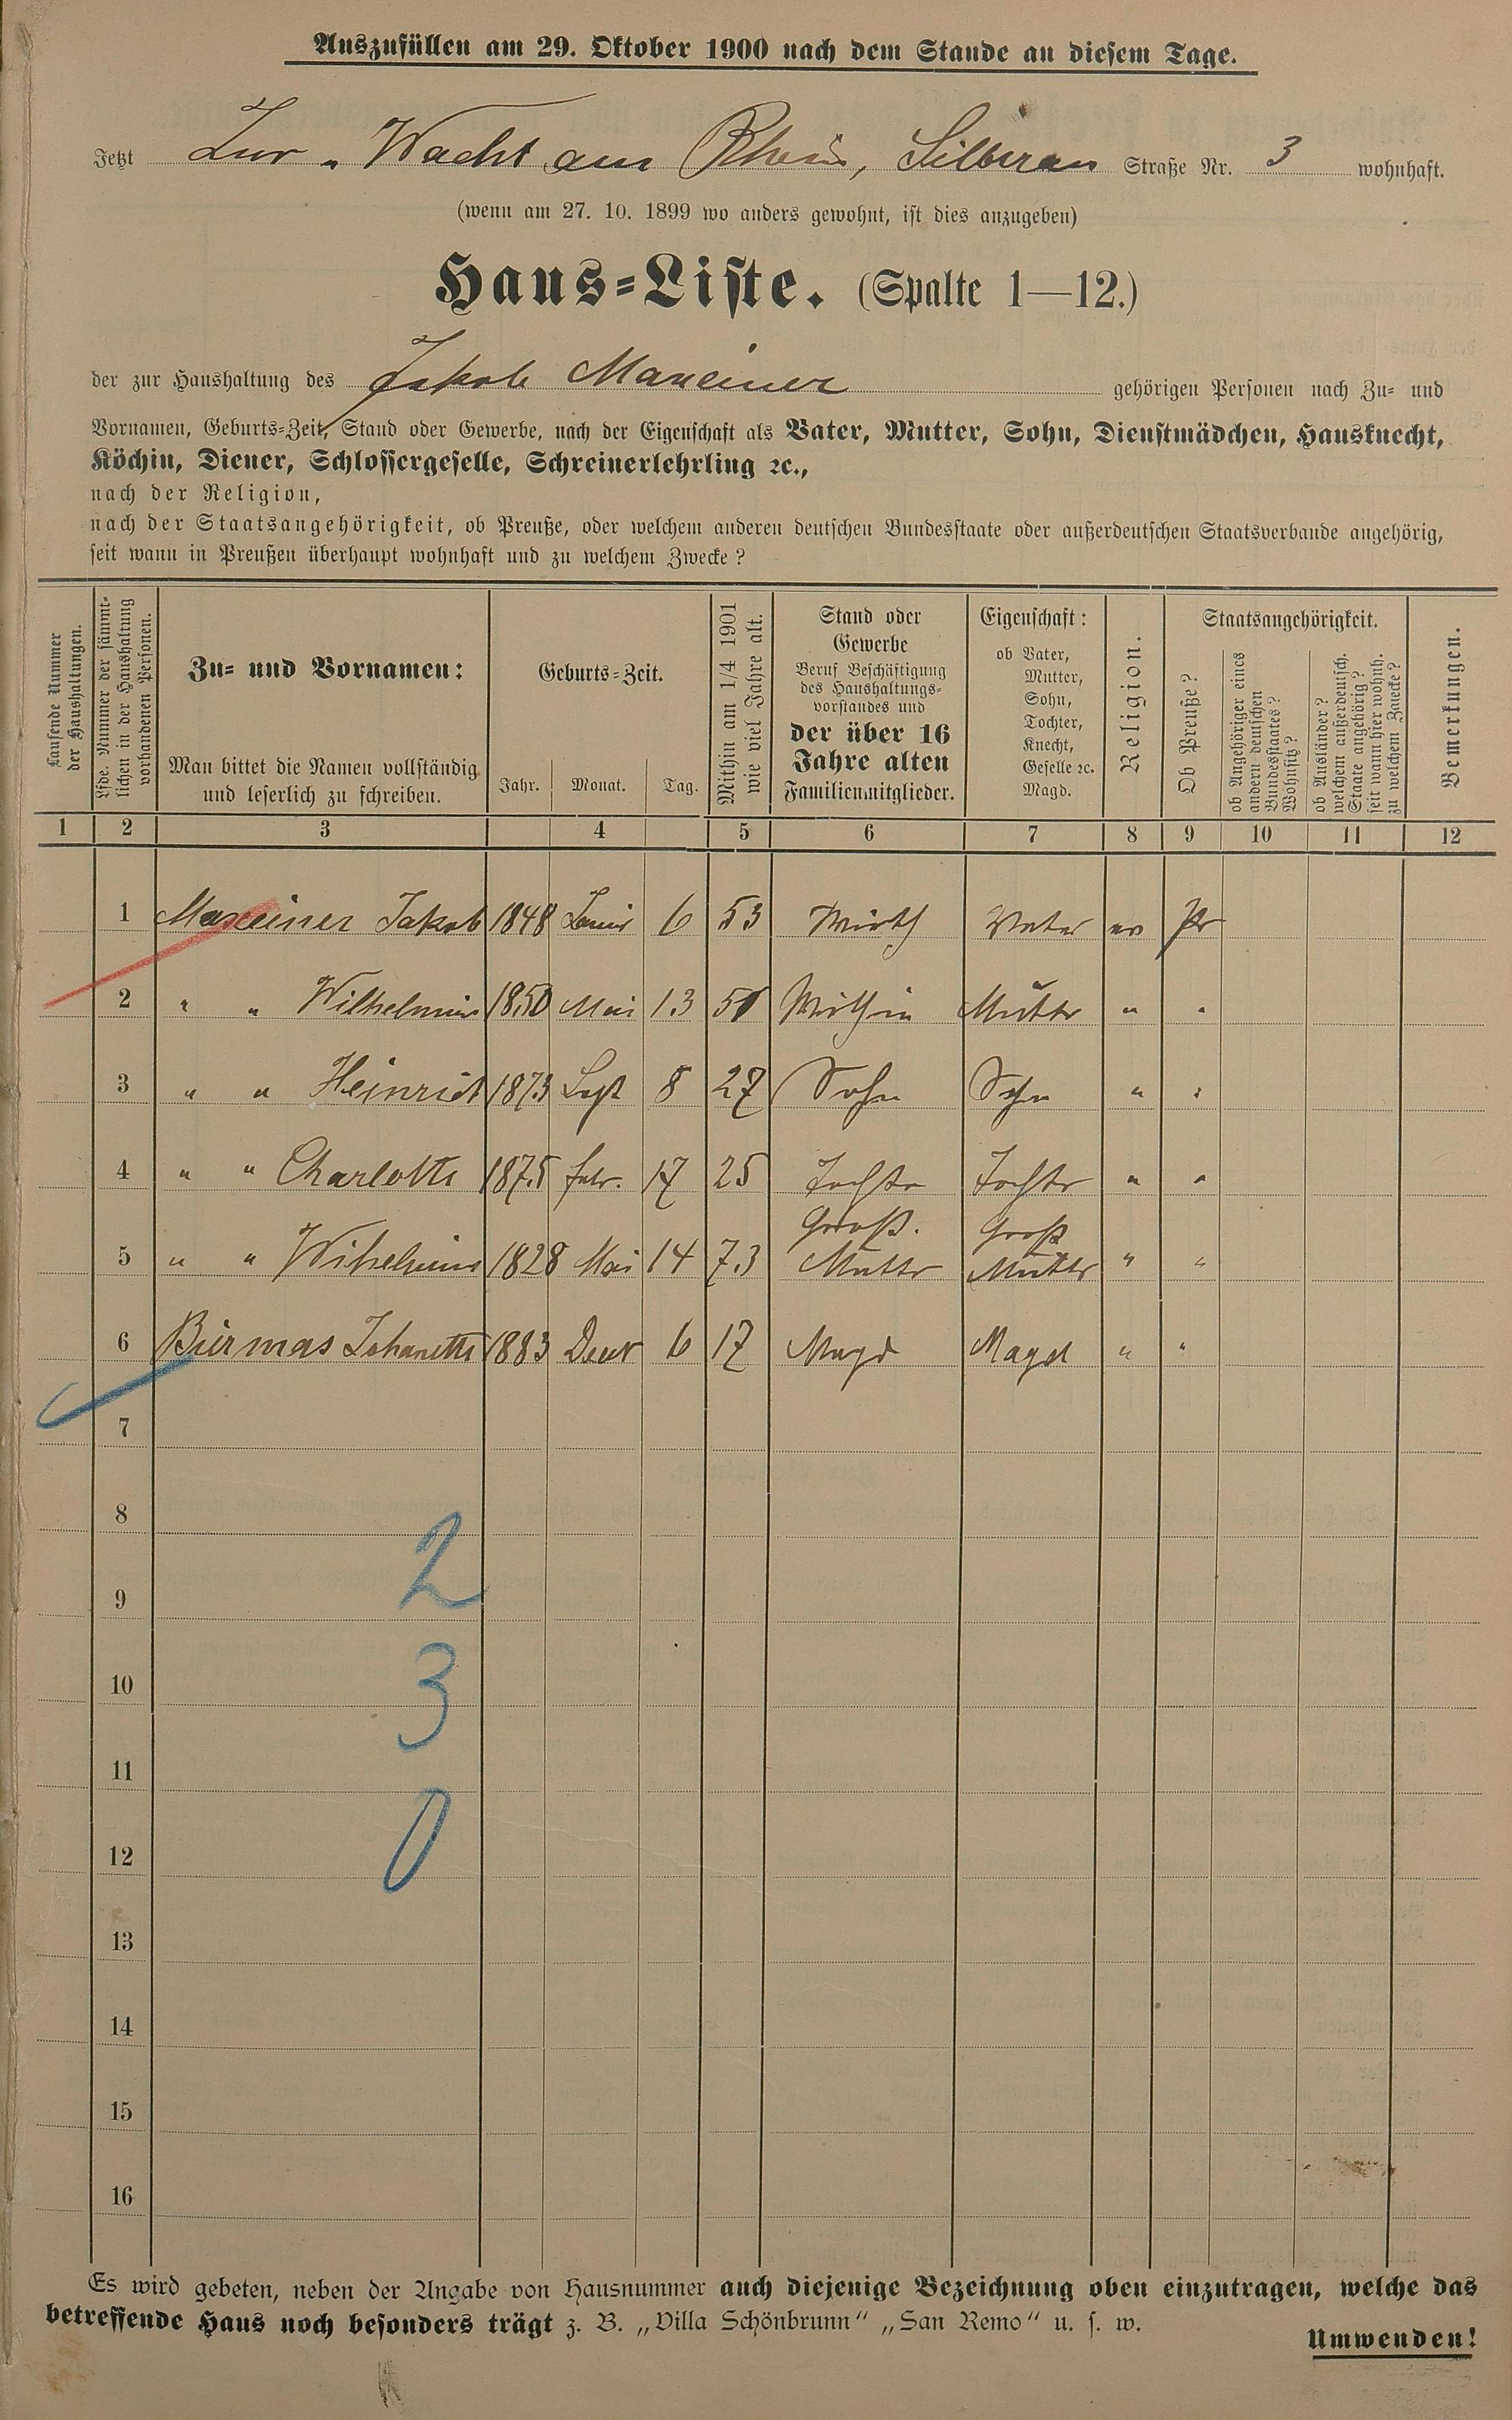 Auszufüllen am 29. Oktober 1900 nach dem Stande an diesem Tage.
Jetzt Zur „Wacht am Rhein, Silberau Straße Nr. 3 wohnhaft.
(wenn am 27. 10. 1899 wo anders gewohnt, ist dies anzugeben)
Haus-Liste. (Spalte 1—12.)
der zur Haushaltung des Jakob Maxeiner gehörigen Personen nach Zu- und
Vornamen, Geburts-Zeit, Stand oder Gewerbe, nach der Eigenschaft als Vater, Mutter, Sohn, Dienstmädchen, Hausknecht,
Köchin, Diener, Schlossergeselle, Schreinerlehrling ꝛc.,
nach der Religion,
nach der Staatsangehörigkeit, ob Preuße, oder welchem anderen deutschen Bundesstaate oder außerdeutschen Staatsverbande angehörig,
seit wann in Preußen überhaupt wohnhaft und zu welchem Zwecke?
Laufende Nummer
der Haushaltungen.
Lfde. Nummer der sämmt-
lichen in der Haushaltung
vorhandenen Personen.
Zu- und Vornamen:
Man bittet die Namen vollständig
und leserlich zu schreiben.
Geburts-Zeit.
Jahr. Monat. Tag.
Mithin am 1/4 1901
wie viel Jahre alt.
Stand oder
Gewerbe
Beruf Beschäftigung
des Haushaltungs-
vorstandes und
der über 16
Jahre alten
Familienmitglieder.
Eigenschaft:
ob Vater,
Mutter,
Sohn,
Tochter,
Knecht,
Geselle ꝛc.
Magd.
Religion.
Staatsangehörigkeit.
Ob Preuße?
ob Angehöriger eines
andern deutschen
Bundesstaates?
Wohnsitz?
ob Ausländer?
welchem außerdeutsch.
Staate angehörig?
seit wann hier wohnh.
zu welchem Zwecke?
Bemerkungen.
1 2 3 4 5 6 7 8 9 10 11 12
1 Maxeiner Jakob 1848 6 53 Wirth Vater ev Pr
2 " " Wilhelmine 1850 Mai 13 Wirthin Mutter " "
3 " " Heinrich 1873 Sept 8 27 Sohn Sohn " "
4 " " Charlotte 1875 Febr. 17 25 Tochter Tochter " "
Groß. Groß
5 " " Wilhelmine 1828 Mai 14 73 Mutter Mutter " "
6 Biermas Johanette 1883 6 17 Magd Magd " "
7
8
2
9
10
3
11
12
0
13
14
15
16
Es wird gebeten, neben der Angabe von Hausnummer auch diejenige Bezeichnung oben einzutragen, welche das
betreffende Haus noch besonders trägt z. B. „Villa Schönbrunn“ „San Remo“ u. s. w.
Umwenden!